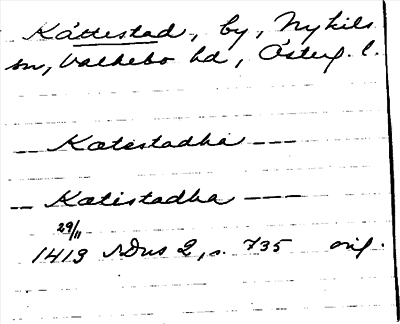 Kättestad, by, Nykils
sn, Valkebo hd, Österg. l.
-- Kætestadha ---
-- Kætistadha ---
29/11
1419 SDns 2, s. 735 orig.